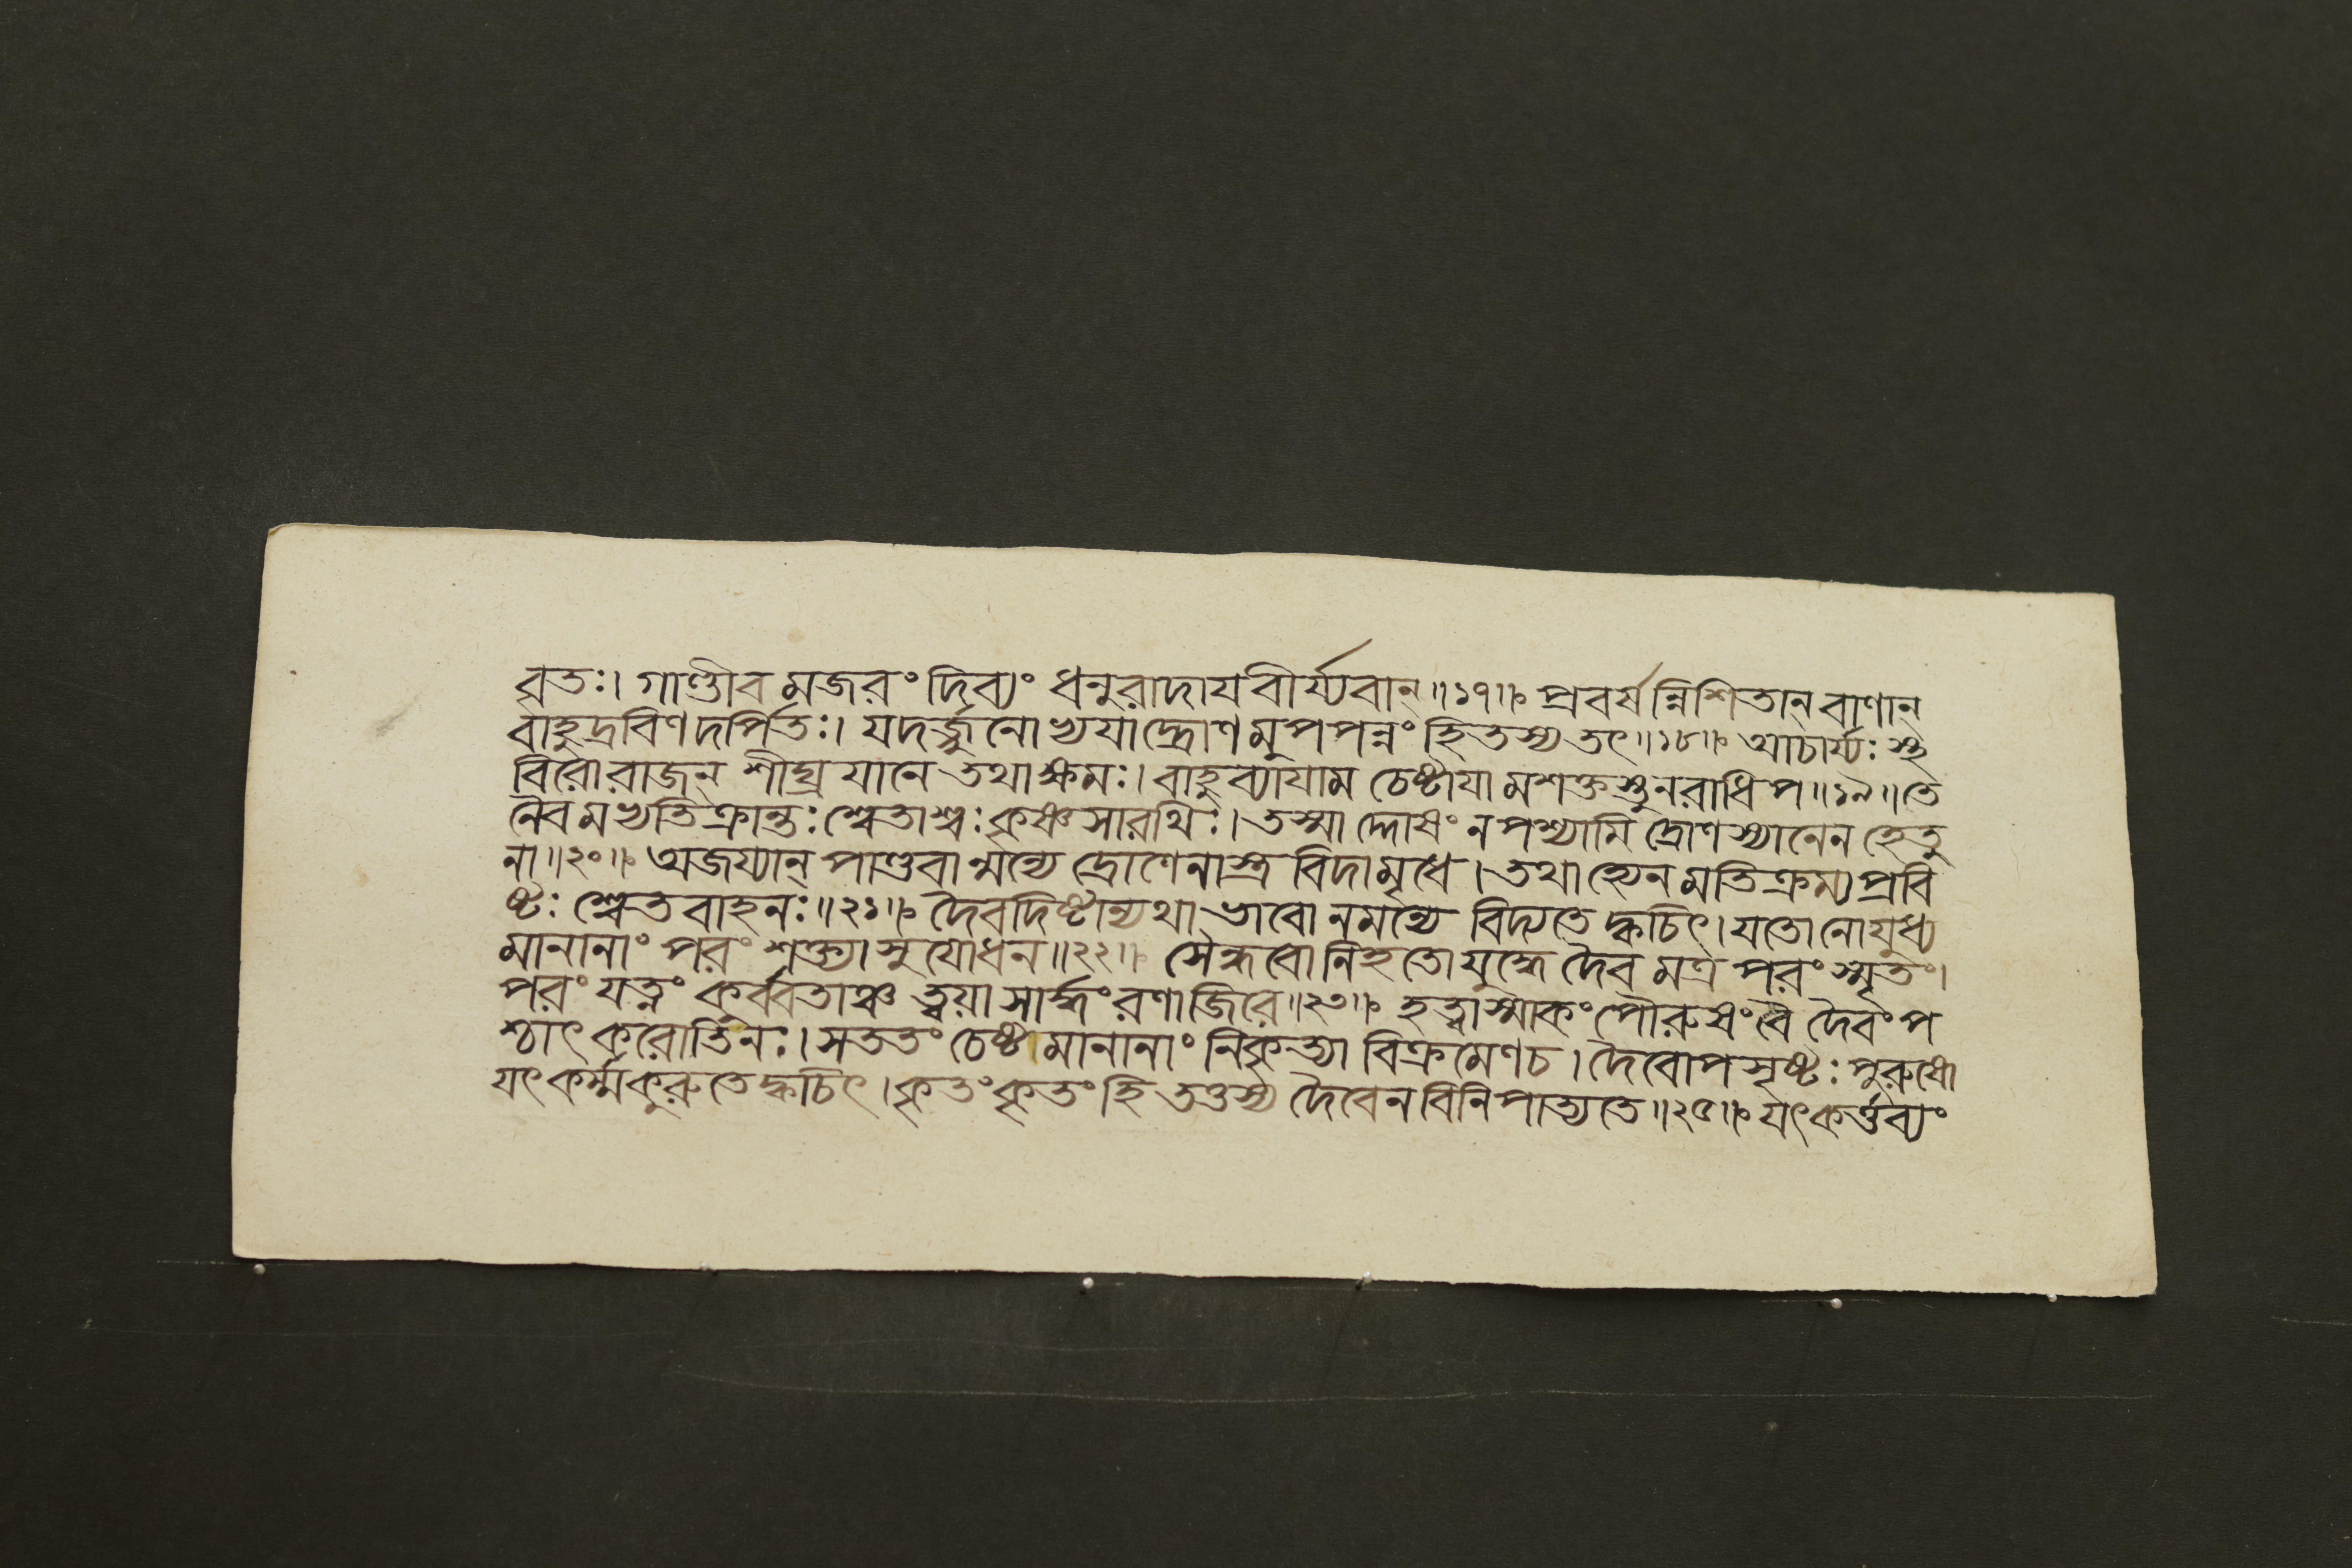 ব্রতঃ। গাণ্ডীবমজরং দিব্যং ধনুরাদায বীর্য্যবান্॥১৭॥ প্রবর্ষন্নিশিতান্ বাণান্
বাহুদ্রবিণদর্পিতঃ। যদর্জ্জুনোভ্যযাদ্দ্রোণমুপপন্নং হি তস্য তৎ॥১৮॥ আচার্য্যঃ স্থ
বিরোরাজন্ শীঘ্রযানে তথাক্ষমঃ। বাহুব্যাযামচেষ্টাযামশক্তস্তু নরাধিপ॥১৯॥ তে
নৈবমভ্যতিক্রান্তঃ শ্বেতাশ্বঃ কৃষ্ণসারথিঃ। তস্মাদ্দোষং ন পশ্যামি দ্রোণস্যানেন হেতু
না॥২০॥ অজয্যান্ পাণ্ডবান্মন্যে দ্রোণেনাস্ত্রবিদামৃধে। তথাহ্যেনমতিক্রম্য প্রবি
ষ্টঃ শ্বেতবাহনঃ॥২১॥ দৈবদিষ্টান্যথাভাবো নমন্যে বিদ্যতে ক্বচিৎ। যতোনোযুধ্য
মানানাং পরং শক্ত্যা সুযোধন॥২২॥ সৈন্ধবোনিহতো যুদ্ধে দৈবমত্র পরং স্মৃতং।
পরং যত্নং কুর্ব্বতাঞ্চ ত্বয়া সার্দ্ধং রণাজিরে॥২৩॥ হত্বাস্মাকং পৌরুষং বৈ দৈবং প
শ্চাৎ করোতিনঃ। সততং চেষ্টমানানাং নিকৃত্যা বিক্রমেণচ। দৈবোপসৃষ্টঃ পুরুষো
যৎ কর্ম্মকুরুতে ক্বচিৎ। কৃতং কৃতং হি তত্তস্য দৈবেন বিনিপাত্যতে॥২৫॥ যৎকর্ত্তব্যং